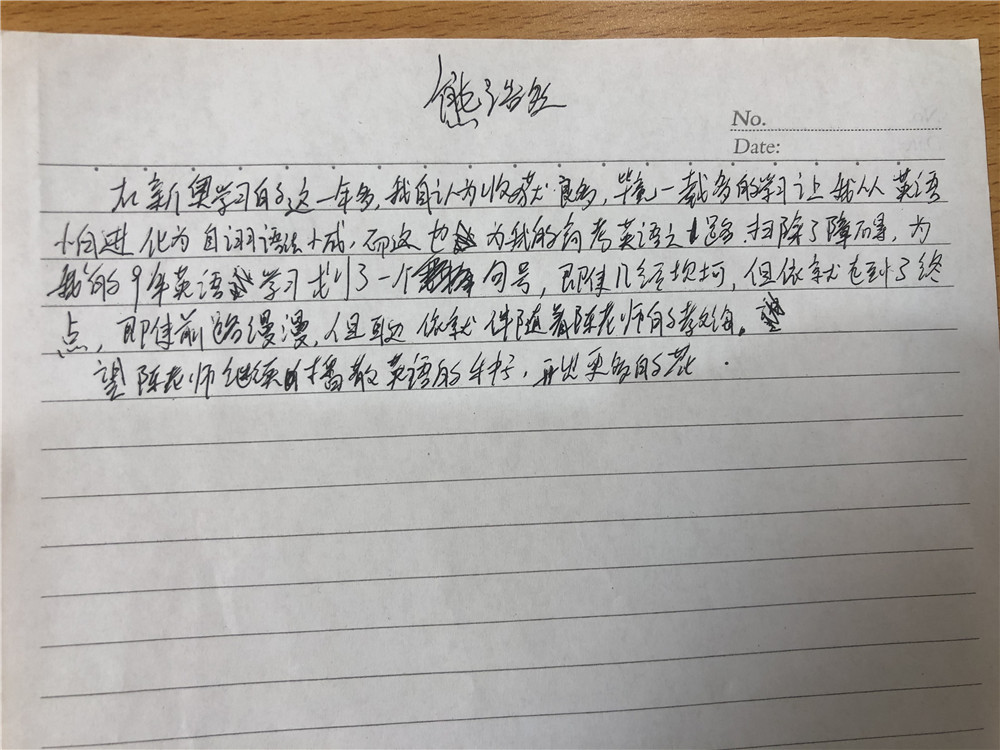 熊
No.
Date:
在新奥学习的这一年多,我自认为收获良多,毕竟一载多的学习让我从英语
小白进化为自诩语法小成,而这也为我的高考英语之路扫除了障碍,为
我的9年英语学习划了一个句号,即使几经坎坷,但依就走到了终
点,即使前路漫漫,但耳边依就伴随着陈老师的教诲。
望陈老师继续播散英语的种子,开出更多的花.